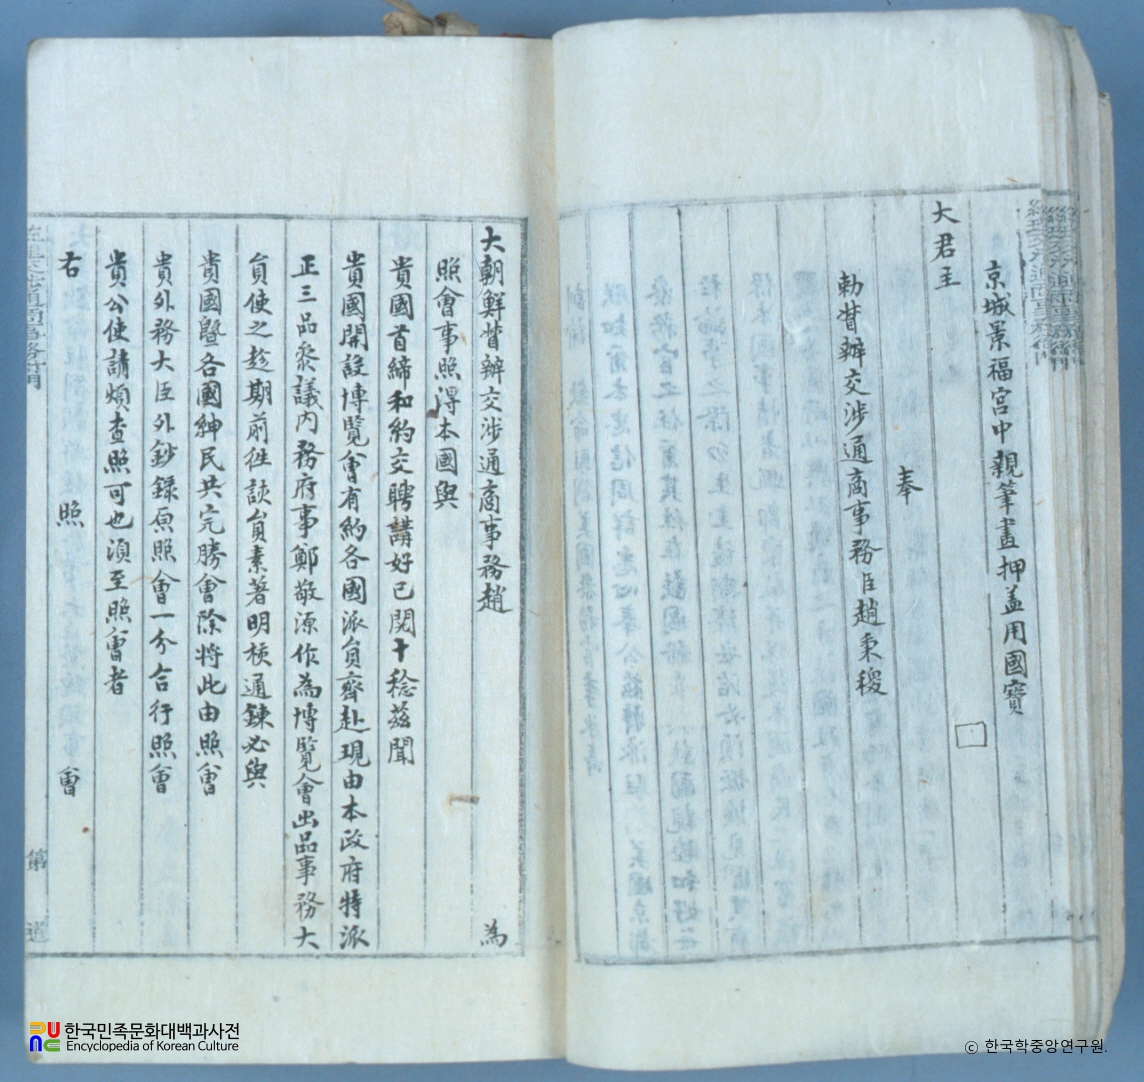 京城景福宮中親筆畫押盖用國寶
大君主
奉
勅督辦交涉通商事務臣趙秉稷
大朝鮮督辦交涉通商事務趙 為
照會事照得本國與
貴國首締和約交聘講好已閱十稔茲聞
貴國開設博覽會有約各國派負齊赴現由本政府特派
正三品叅議內務府事鄭敬源作為博覽會出品事務大
負使之趁期前徃該負素著明梗通鍊必與
貴國曁各國紳民共完勝會除將此由照會
貴外務大臣外鈔錄原照會一分合行照會
貴公使請煩查照可也湏至照會者
右 照 會
第 道
한국민족문화대백과사전
Encyclopedia of Korean Culture
ⓒ 한국학중앙연구원.